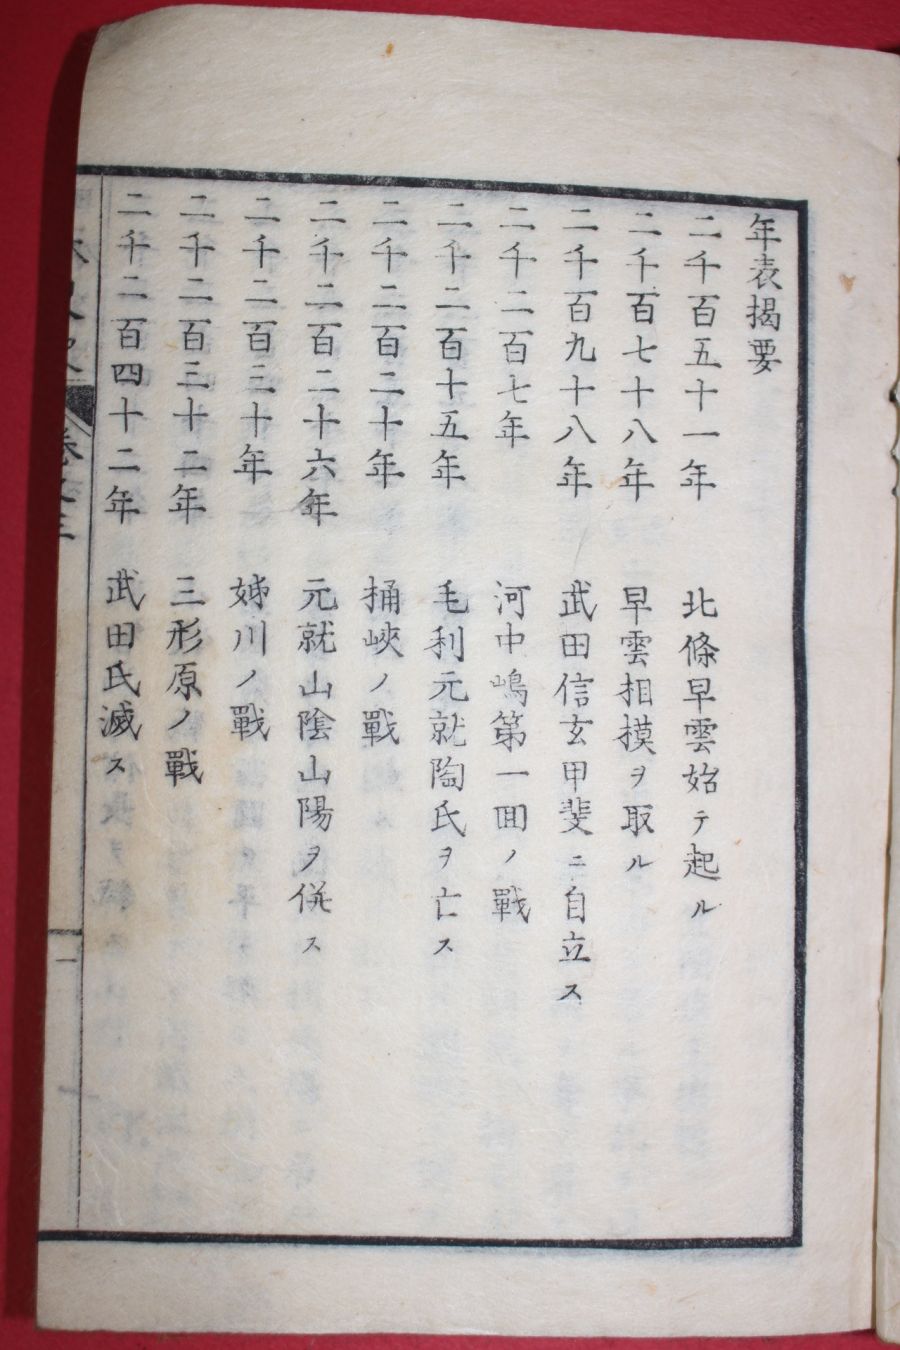 年表揭要
二千百五十一年 北條早雲始テ起ル
二千百七十八年 早雲相摸ヲ取ル
二千百九十八年 武田信玄甲斐ニ自立ス
二千二百七年 河中嶋第一回ノ戰
二千二百十五年 毛利元就陶氏ヲ亡ス
二千二百二十年 桶峽ノ戰
二千二百二十六年 元就山陰山陽ヲ併ス
二千二百三十年 姊川ノ戰
二千二百三十二年 三形原ノ戰
二千二百四十二年 武田氏滅ス